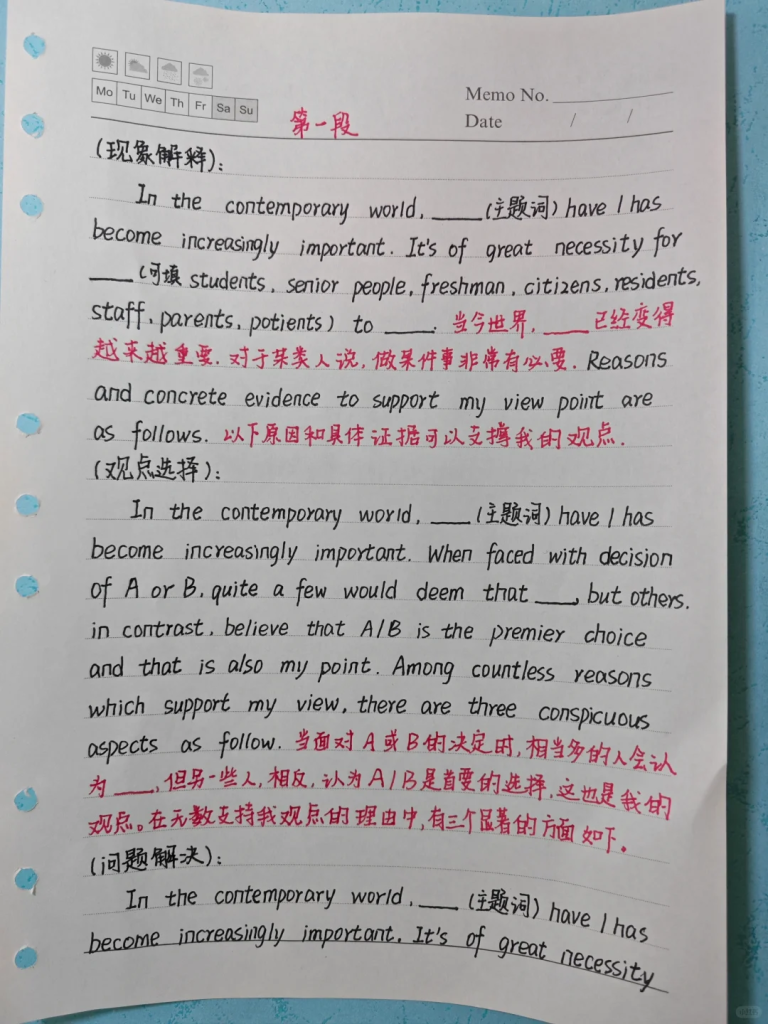 Mo Tu We Th Fr Sa Su
Memo No.
Date / /
第一段
(现象解释):
In the contemporary world, ____(主题词) have / has
become increasingly important. It's of great necessity for
____(可填 students, senior people, freshman, citizens, residents,
staff, parents, potients) to ____. 当今世界, ____已经变得
越来越重要. 对于某类人说, 做某件事非常有必要. Reasons
and concrete evidence to support my view point are
as follows. 以下原因和具体证据可以支撑我的观点.
(观点选择):
In the contemporary world, ____(主题词) have / has
become increasingly important. When faced with decision
of A or B, quite a few would deem that ____, but others.
in contrast, believe that A/B is the premier choice
and that is also my point. Among countless reasons
which support my view, there are three conspicuous
aspects as follow. 当面对A或B的决定时, 相当多的人会认
为 ____, 但另一些人, 相反, 认为A/B是首要的选择, 这也是我的
观点。在无数支持我观点的理由中, 有三个显著的方面如下。
(问题解决):
In the contemporary world, ____ (主题词) have / has
become increasingly important. It's of great necessity